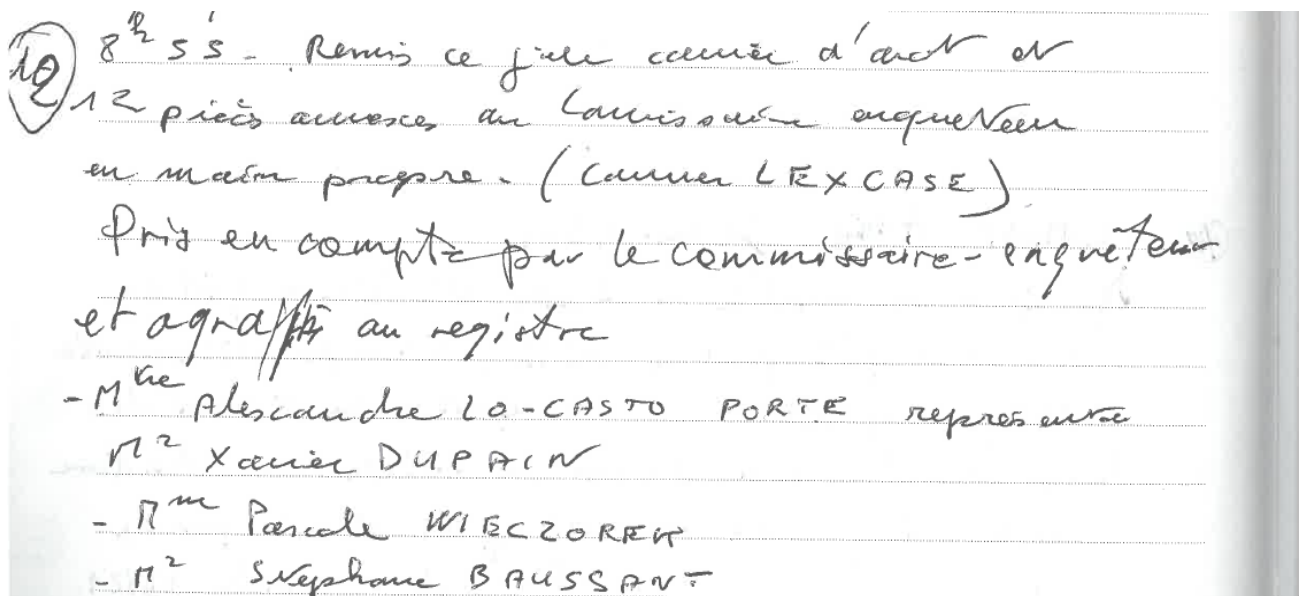 10 8h 55 - Remis ce jour courrier d'avocat et
12 pièces annexes au Commissaire enquêteur
en main propre. (courrier LEXCASE)
Pris en compte par le commissaire-enquêteur
et agraffé au registre
- Mtre Alexandre LO-CASTO PORTE représente
Mr Xavier DUPAIN
- Mme Pascale WIECZOREK
- Mr Stéphane BAUSSANT